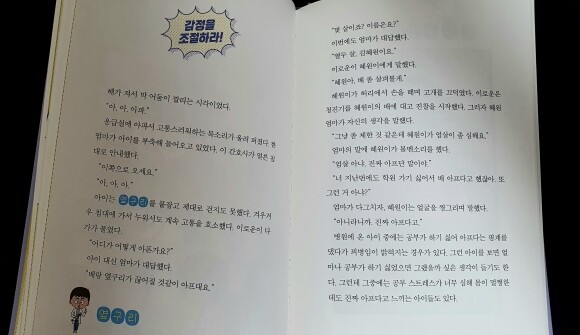 감정을
조절하라!
해가 져서 막 어둠이 깔리는 시각이었다.
"아, 아, 아파."
응급실에 아파서 고통스러워하는 목소리가 울려 퍼졌다. 한
엄마가 아이를 부축해 들어오고 있었다. 이 간호사가 얼른 침
대로 안내했다.
"이쪽으로 오세요."
"아, 아, 아."
아이는 옆구리를 붙잡고 제대로 걷지도 못했다. 겨우겨
우 침대에 가서 누워서도 계속 고통을 호소했다. 이로운이 다
가가 물었다.
"어디가 어떻게 아픈가요?"
아이 대신 엄마가 대답했다.
"배랑 옆구리가 끊어질 것같이 아프대요."
옆구리
"몇 살이죠? 이름은요?"
이번에도 엄마가 대답했다.
"열두 살, 김혜원이요."
이로운이 혜원이에게 말했다.
"혜원아, 배 좀 살펴볼게."
혜원이가 허리에서 손을 떼며 고개를 끄덕였다. 이로운은
청진기를 혜원이의 배에 대고 진찰을 시작했다. 그러자 혜원
엄마가 자신의 생각을 말했다.
"그냥 좀 체한 것 같은데 혜원이가 엄살이 좀 심해요."
엄마의 말에 혜원이가 볼멘소리를 했다.
"엄살 아냐. 진짜 아프단 말이야."
"너 지난번에도 학원 가기 싫어서 배 아프다고 했잖아. 또
그런 거 아냐?"
엄마가 다그치자, 혜원이는 얼굴을 찡그리며 말했다.
"아니라니까. 진짜 아프다고."
병원에 온 아이 중에는 공부가 하기 싫어 아프다는 핑계를
댔다가 꾀병임이 밝혀지는 경우가 있다. 그런 아이를 보면 얼
마나 공부가 하기 싫었으면 그랬을까 싶은 생각이 들기도 한
다. 그런데 그중에는 공부 스트레스가 너무 심해 몸이 멀쩡한
데도 진짜 아프다고 느끼는 아이들도 있다.